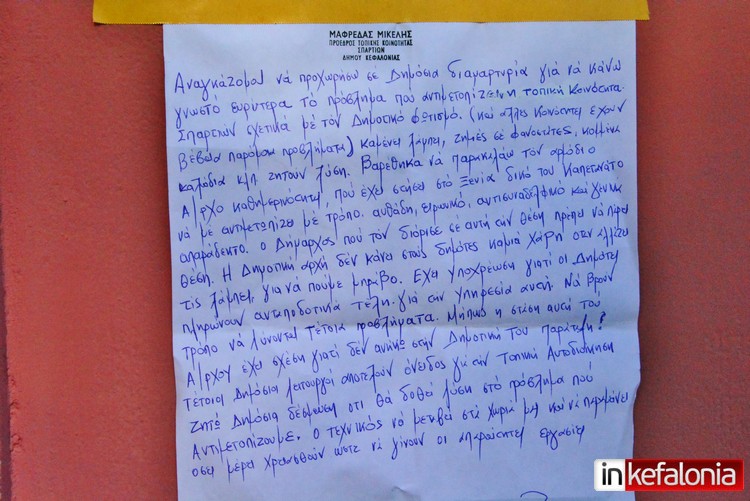 ΜΑΦΡΕΔΑΣ ΜΙΚΕΛΗΣ
ΠΡΟΕΔΡΟΣ ΤΟΠΙΚΗΣ ΚΟΙΝΟΤΗΤΑΣ
ΣΠΑΡΤΙΩΝ
ΔΗΜΟΥ ΚΕΦΑΛΟΝΙΑΣ
Αναγκάζομαι νά προχωρήσω σέ Δημόσια διαμαρτυρία γιά νά κάνω
γνωστό ευρύτερα τό πρόβλημα πού αντιμετωπίζει η τοπική Κοινότητα
Σπαρτιών σχετικά μέ τόν Δημοτικό φωτισμό. (και άλλες Κοινότητες έχουν
βέβαια παρόμοια προβλήματα) Καμένες λάμπες, ζημιές σέ φανοστάτες, κομμένα
καλώδια κ/π ζητούν λύση. Βαρέθηκα νά παρακαλάω τόν αρμόδιο
Α/ρχο καθημερινότητας, πού έχει στήσει στό Ξενία δικό του Καπετανάτο
νά μέ αντιμετωπίζει μέ τρόπο αυθάδη, ειρωνικό, αντισυναδελφικό και γενικά
απαράδεκτο. ο Δήμαρχος πού τόν διόρισε σέ αυτή την θέση πρέπει νά πάρει
θέση. Η Δημοτική αρχή δέν κάνει στούς δημότες καμιά χάρη όταν αλλάζει
τίς λάμπες, γιά νά πούμε μπράβο. Εχει υποχρέωση γιατί οι Δημότες
πληρώνουν ανταποδοτικά τέλη γιά την υπηρεσία αυτή. Νά βρούν
τρόπο νά λύνονται τέτοια προβλήματα. Μήπως η στάση αυτή τού
Α/ρχου έχει σχέση γιατί δέν ανήκω στην Δημοτική του Παράταξη?
τέτοιοι Δημόσιοι λειτουργοί αποτελούν όνειδος γιά την Τοπική Αυτοδιοίκηση
Ζητώ Δημόσια δέσμευση οτι θά δοθεί λύση στό πρόβλημα πού
Αντιμετοπίζουμε. ο τεχνικός νά μεταβεί στά χωριά μας και νά παραμείνει
οσες μέρες χρειασθούν ωστε νά γίνουν οι απαραίτητες εργασίες
inkefalonia